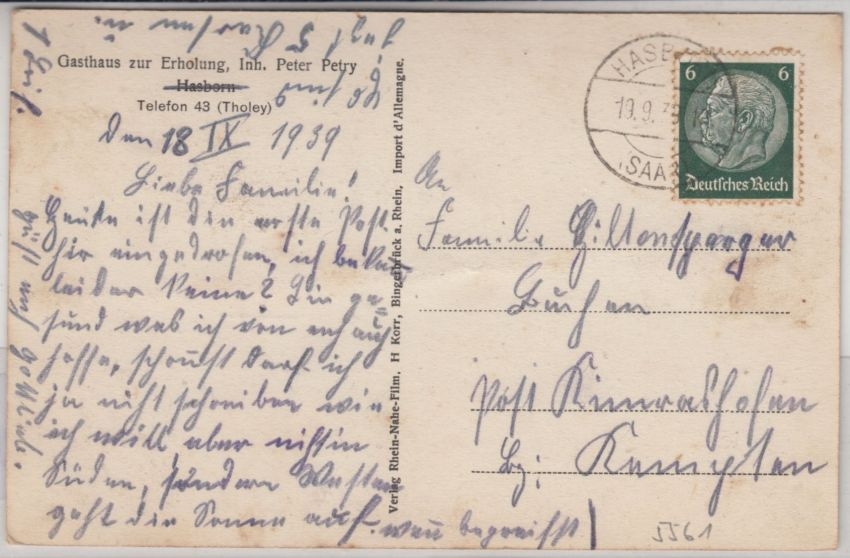 Gasthaus zur Erholung, Inh. Peter Petry
Hasborn
Telefon 43 (Tholey)
Den 18 IX 1939
Liebe Familie!
Heute ist die erste Post
hir eingedrofen, ich bekam
leider keine? Bin ge-
sund was ich von euch auch
hoffe, schonst darf ich
ja nicht schreiben wie
ich will, aber nicht in
Süden, sondern Westen
geht die Sonne auf. wen begreifst
grüßt euch
Verlag Rhein-Nahe-Film, H Korr, Bingerbrück a. Rhein, Import d'Allemagne.
HASBORN
19.9.39
(SAAR)
6 6
Deutsches Reich
An
Familie
Buchen
Post Kimratshofen
bz: Kempten
5561